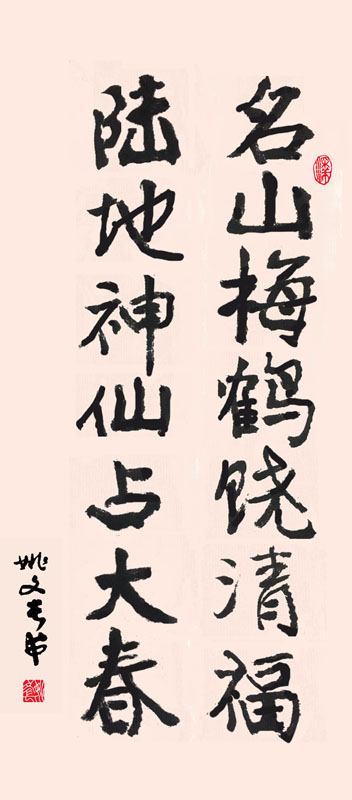 名山梅鹤饶清福
陆地神仙占大春
姚文